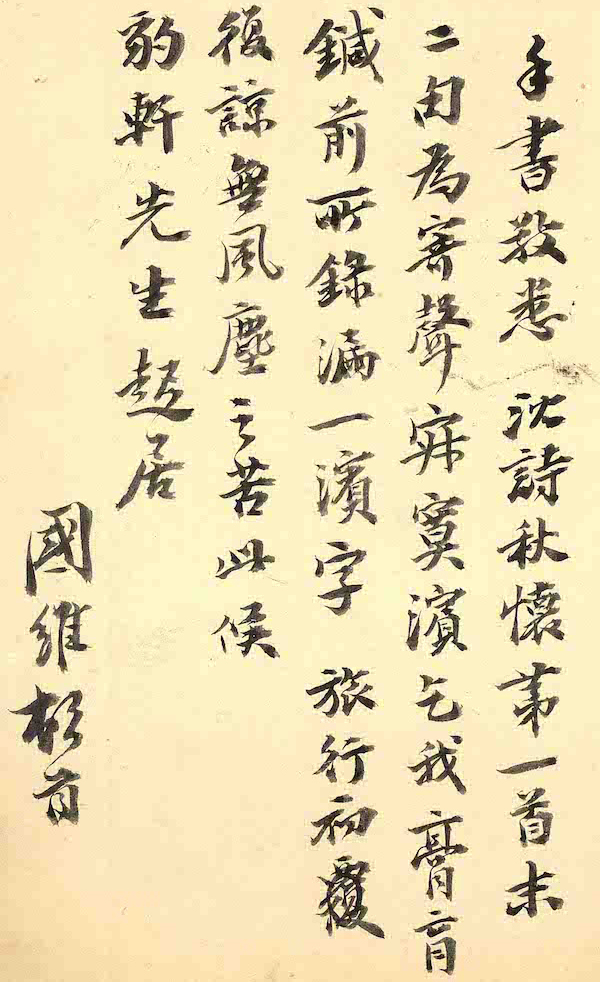 手書敬悉 沈詩秋懷第一首末
二句為寄聲寂寞濱乞我膏肓
鍼前所錄漏一濱字 旅行初覆
復諒無風塵之苦此候
豹軒先生起居
國維頓首